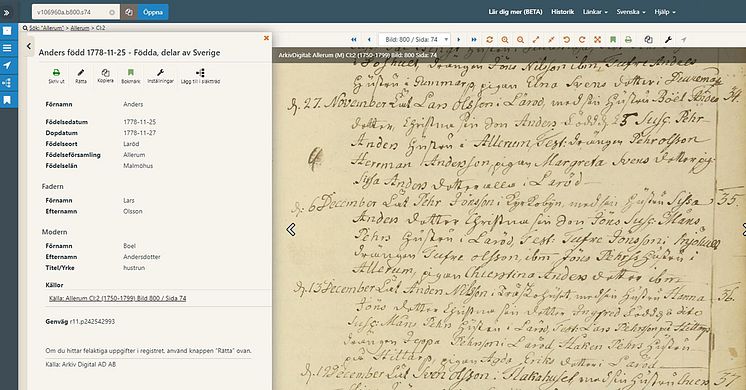 v106960a.b800.s74
Öppna
Lär dig mer (BETA)
Historik
Länkar
Svenska
Hjälp
Sök: "Allerum" > Allerum > CI:2
Bild: 800 / Sida: 74
ArkivDigital: Allerum (M) CI:2 (1750-1799) Bild: 800 Sida: 74
Anders född 1778-11-25 - Födda, delar av Sverige
Skriv ut
Rätta
Kopiera
Bokmärk
Inställningar
Lägg till i släktträd
Förnamn Anders
Födelsedatum 1778-11-25
Dopdatum 1778-11-27
Födelseort Laröd
Födelseförsamling Allerum
Födelselän Malmöhus
Fadern
Förnamn Lars
Efternamn Olsson
Modern
Förnamn Boel
Efternamn Andersdotter
Titel/Yrke hustrun
Källor
Källa: Allerum CI:2 (1750-1799) Bild 800 / Sida 74
Genväg r11.p242542993
Om du hittar felaktiga uppgifter i registret, använd knappen "Rätta" ovan.
Källa: Arkiv Digital AD AB
Jöns Nilsson ibm
Hustrun i Gummarp, pigan Elna Svens dotter i
d. 27 November Lät Lars Olsson i Laröd, med sin Hustru Boel Anders 34.
dotter, Christna sin Son Anders Född d. 25 Susc. Pehr
Anders Hustru i Allerum, Test. drängen Pehr Olsson
Herman Andersson, pigan Margreta Svens dotter pig.
Sissa Anders dotter alla i Laröd
d. 6 December Lät Pehr Jönsson i Kyrkobyn, med sin Hustru Sissa 35.
Anders dotter Christna sin Son Jöns Susc. Måns
Pehrs Hustru i Laröd, Test. Tufve Jönsson i
drängen Tufve Olsson, ibm Jöns Pehrs Hustru i
Allerum, pigan Chierstina Anders dotter ibm
d. 13 December Lät Anden Nilsson i med sin Hustru Hanna 36.
Jöns dotter Christna sin dotter Ingred
Susc. Måns Pehrs Hustru i Laröd Test. Lars Pehrsson på Hittarp
drängen Jeppa Pehrsson i Laröd, Håken Pehrs Hustru
på Hittarp, pigan Agda Eriks dotter i Laröd
d. 19 December Lät Sven Olsson i med sin Hustru 37.